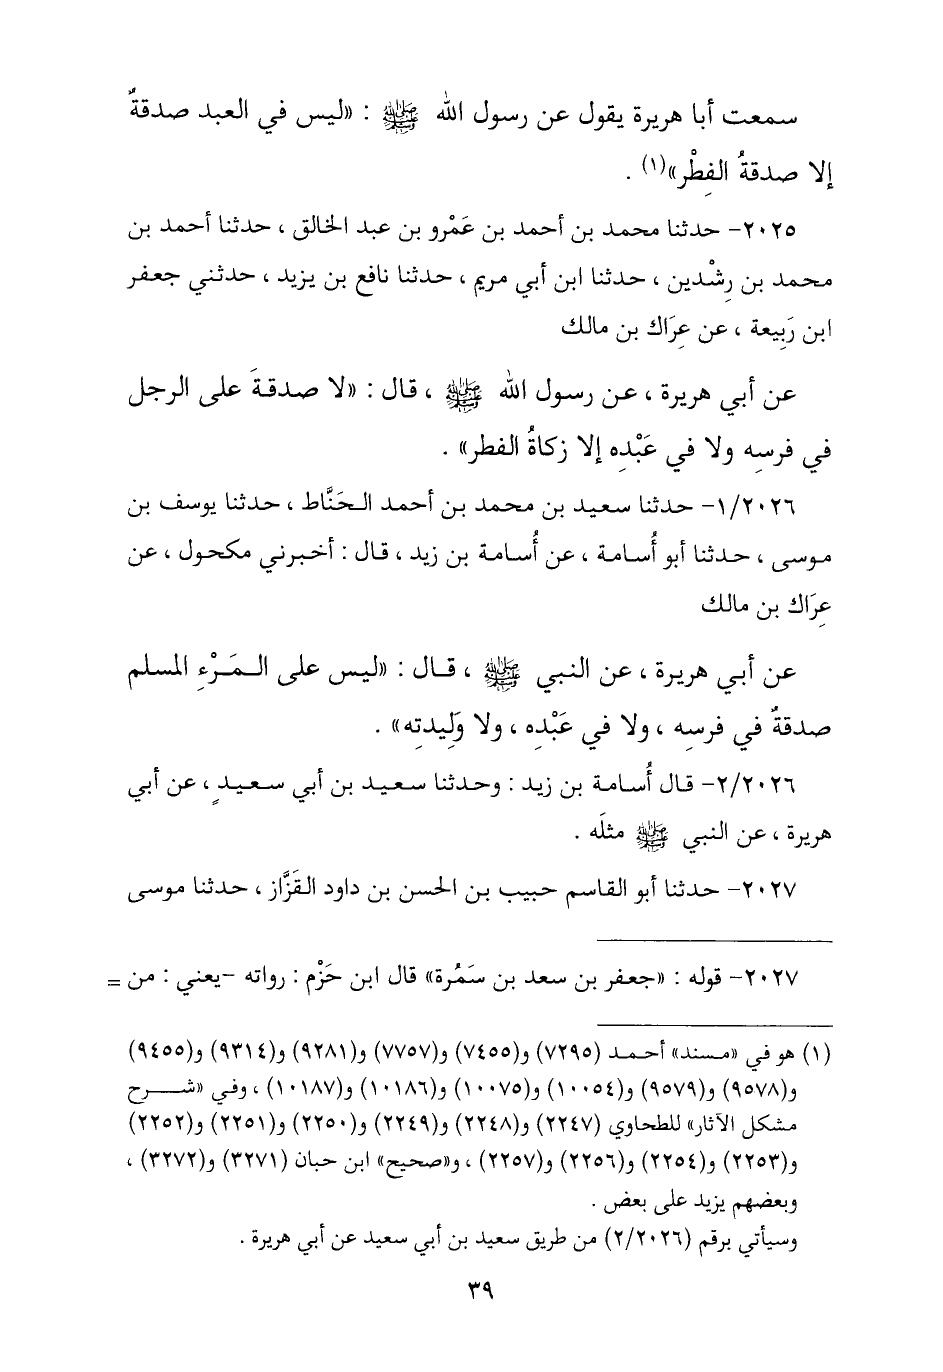 سمعت أبا هريرة يقول عن رسول الله ﷺ : «ليس في العبد صدقةٌ
إلا صدقةُ الفِطْر»(١) .
٢٠٢٥- حدثنا محمد بن أحمد بن عَمْرو بن عبد الخالق ، حدثنا أحمد بن
محمد بن رِشْدين ، حدثنا ابن أبي مريم ، حدثنا نافع بن يزيد ، حدثني جعفر
ابن رَبِيعة ، عن عِرَاك بن مالك
عن أبي هريرة ، عن رسول الله ﷺ ، قال : «لا صدقةَ على الرجل
في فرسِه ولا في عَبْدِه إلا زكاةُ الفطر» .
١/٢٠٢٦- حدثنا سعيد بن محمد بن أحمد الحَنَّاط ، حدثنا يوسف بن
موسى ، حدثنا أبو أُسامة ، عن أُسامة بن زيد ، قال : أخبرني مكحول ، عن
عِرَاك بن مالك
عن أبي هريرة ، عن النبي ﷺ ، قال : «ليس على المَرْءِ المسلم
صدقةٌ في فرسِه ، ولا في عَبْدِه ، ولا وَلِيدتِه» .
٢/٢٠٢٦- قال أُسامة بن زيد : وحدثنا سعيد بن أبي سعيدٍ ، عن أبي
هريرة ، عن النبي ﷺ مثلَه .
٢٠٢٧- حدثنا أبو القاسم حبيب بن الحسن بن داود القَزَّاز ، حدثنا موسى
٢٠٢٧- قوله : «جعفر بن سعد بن سَمُرة» قال ابن حَزْم : رواته -يعني : من =
(١) هو في «مسند» أحمد (٧٢٩٥) و(٧٤٥٥) و(٧٧٥٧) و(٩٢٨١) و(٩٣١٤) و(٩٤٥٥)
و(٩٥٧٨) و(٩٥٧٩) و(١٠٠٥٤) و(١٠٠٧٥) و(١٠١٨٦) و(١٠١٨٧) ، وفي «شرح
مشكل الآثار» للطحاوي (٢٢٤٧) و(٢٢٤٨) و(٢٢٤٩) و(٢٢٥٠) و(٢٢٥١) و(٢٢٥٢)
و(٢٢٥٣) و(٢٢٥٤) و(٢٢٥٦) و(٢٢٥٧) ، و«صحيح» ابن حبان (٣٢٧١) و(٣٢٧٢) ،
وبعضهم يزيد على بعض .
وسيأتي برقم (٢/٢٠٢٦) من طريق سعيد بن أبي سعيد عن أبي هريرة .
٣٩